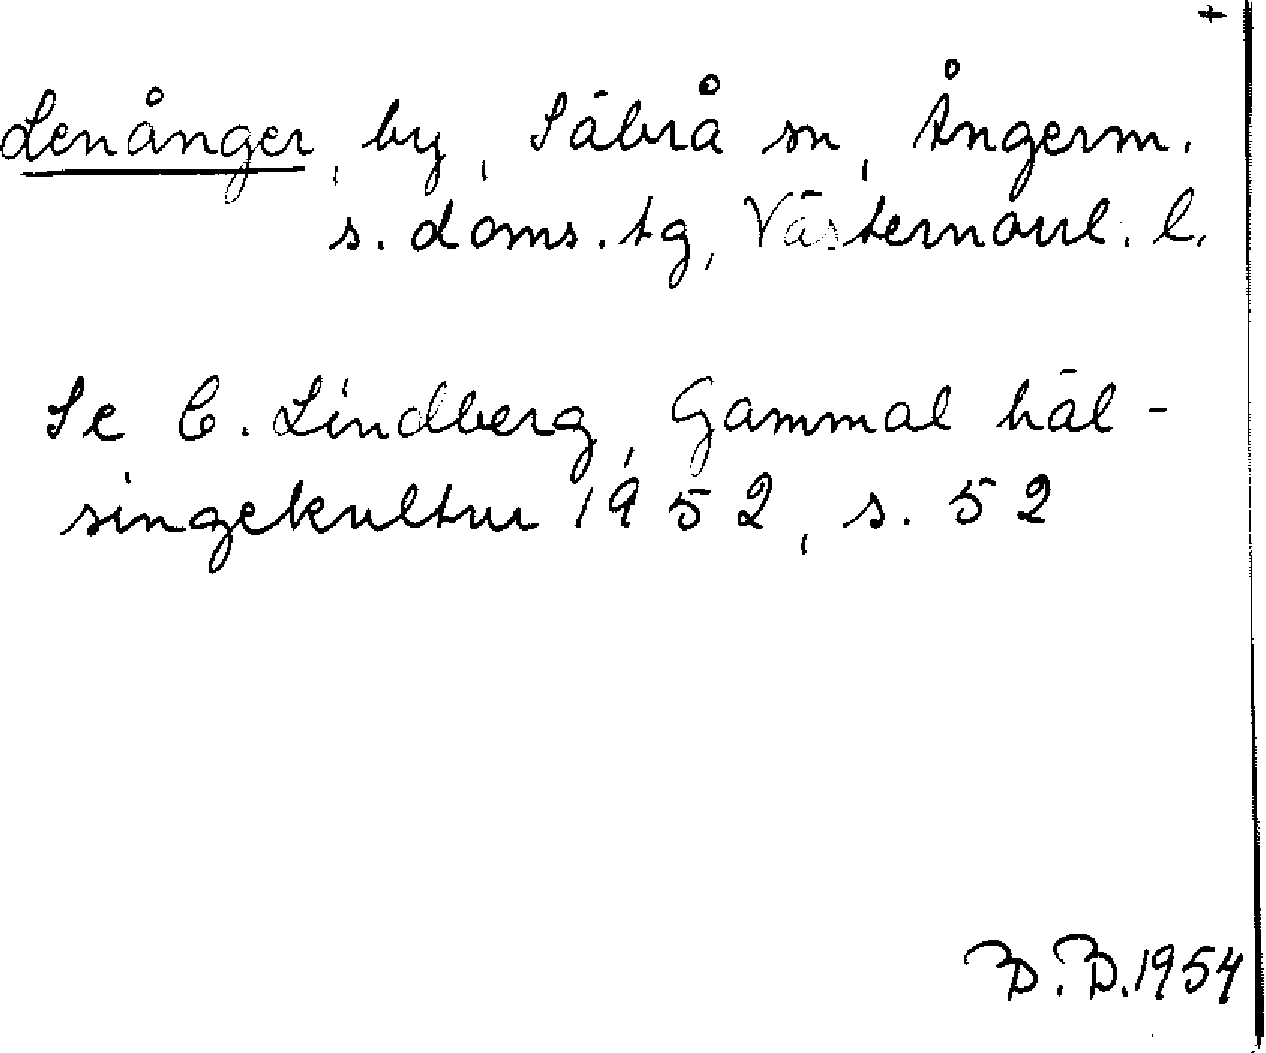 +
Lenånger, by, Säbrå sn, Ångerm.
s. doms. tg, Västernorrl. l.
Se C. Lindberg, Gammal häl-
singekultur 1952, s. 52
B. B. 1954